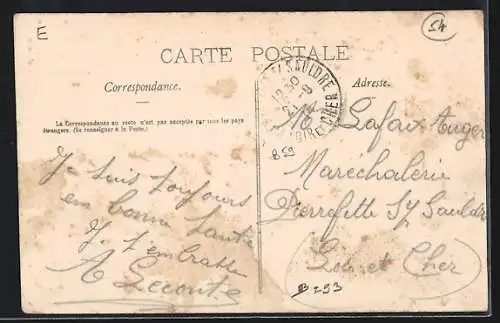 E
54
CARTE POSTALE
Correspondance.
Adresse.
La Correspondance au recto n'est pas acceptée par tous les pays
étrangers. (Se renseigner à la Poste.)
S/ SAULDRE
12 30
LOIR ET CHER
859
Je suis toujours
en bonne santé
Je t'embrasse
A Leconte
M Lafaix Auger
Maréchalerie
Pierrefitte S/ Sauldre
Loir et Cher
B 293